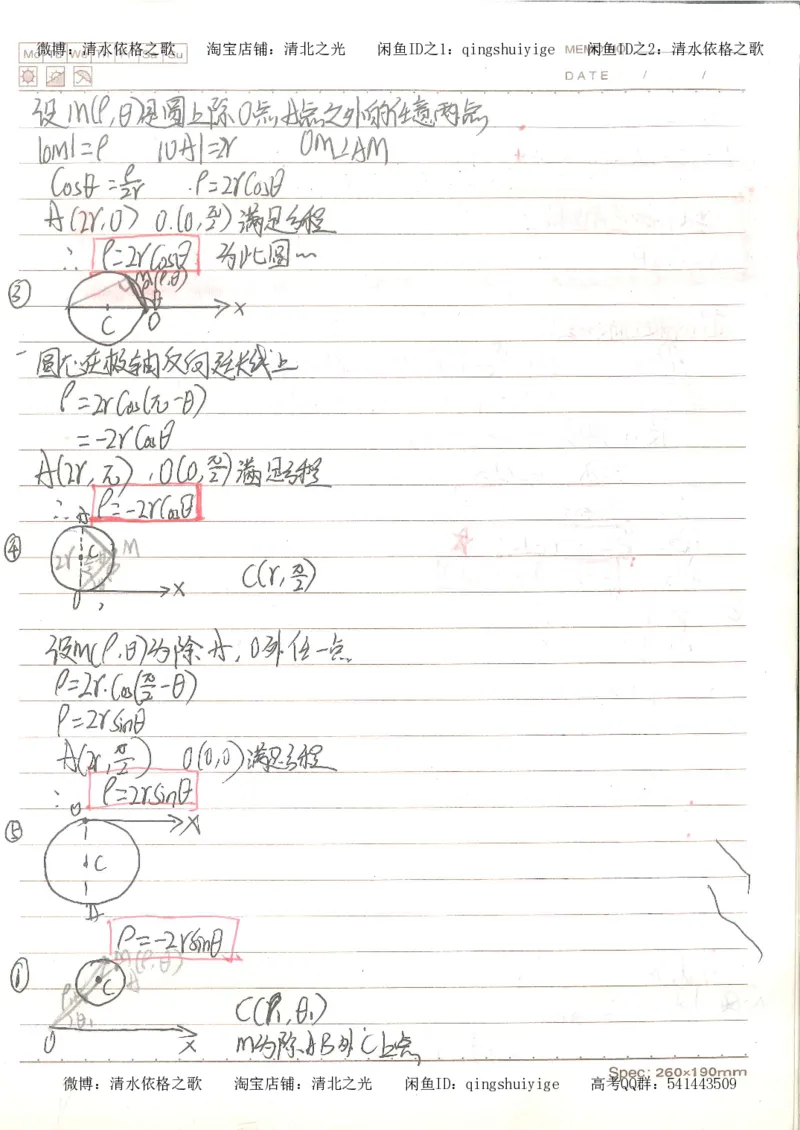 微博：清水依格之歌 淘宝店铺：清北之光 闲鱼ID之1：qingshuiyige 闲鱼ID之2：清水依格之歌
DATE / /
设M(ρ,θ)是圆上除O点,A点之外的任意两点
|OM|=ρ |OA|=2r OM⊥AM
Cosθ=ρ/2r ρ=2rCosθ
A(2r,0) O(0,π/2)满足方程
∴ ρ=2rCosθ 为此圆~
③ M(ρ,θ) θ C O x
圆心在极轴反向延长线上
ρ=2rCos(π-θ)
=-2rCosθ
A(2r,π),O(0,π/2)满足方程
∴ ρ=-2rCosθ
④ A 2r C M O x C(r,π/2)
设M(ρ,θ)为除A,O外任一点
ρ=2r·Cos(π/2-θ)
ρ=2rsinθ
A(2r,π/2) O(0,0)满足方程
∴ ρ=2rsinθ
⑤ O x C A
ρ=-2rsinθ
① M(ρ,θ) A C ρ₁ θ₁ O x
C(ρ₁,θ₁)
M为除AB外C上点
Spec: 260×190mm
微博：清水依格之歌 淘宝店铺：清北之光 闲鱼ID：qingshuiyige 高考QQ群：541443509